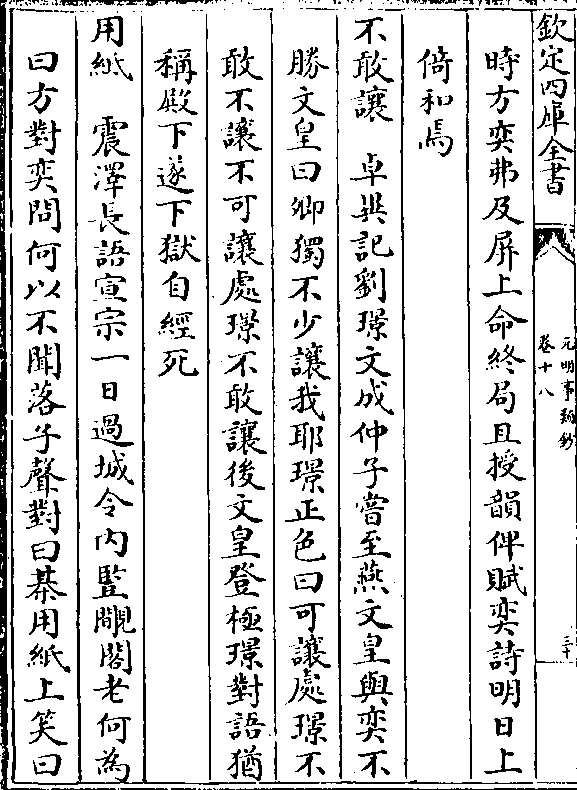 欽定四庫全書
元明事類鈔
卷十八
三十
時方奕弗及屏上命終局且授韻俾賦奕詩明日上
倚和焉
不敢讓　卓異記劉璟文成仲子嘗至燕文皇與奕不
勝文皇曰卿獨不少讓我耶璟正色曰可讓處璟不
敢不讓不可讓處璟不敢讓後文皇登極璟對語猶
稱殿下遂下獄自經死
用紙　震澤長語宣宗一日過城令內監覵閣老何為
曰方對奕問何以不聞落子聲對曰棊用紙上笑曰